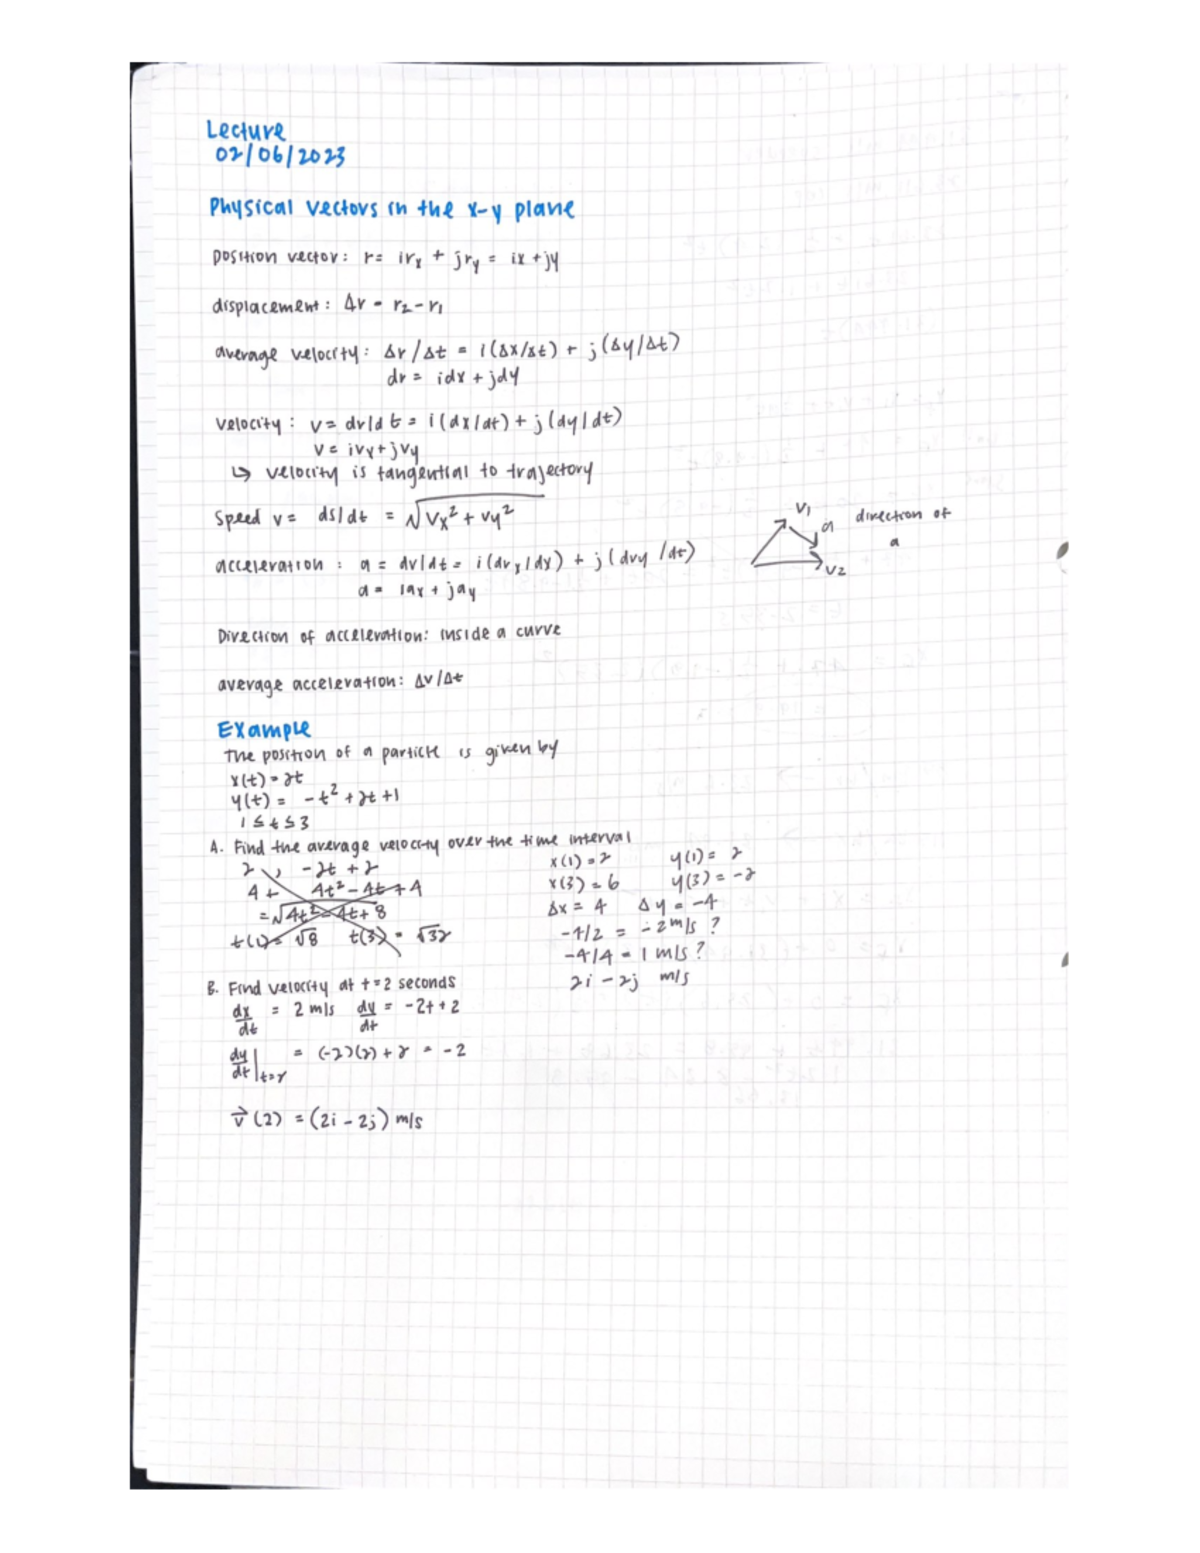 Lecture
02/06/2023
Physical vectors in the x-y plane
position vector: r = irx + jry = ix + jy
displacement: Δr = r2 - r1
average velocity: Δr/Δt = i(Δx/Δt) + j(Δy/Δt)
dr = idx + jdy
velocity: v = dr/dt = i(dx/dt) + j(dy/dt)
v = ivx + jvy
↳ velocity is tangential to trajectory
speed v = ds/dt = √vx² + vy²
v1
a
v2
direction of
a
acceleration: a = dv/dt = i(dvx/dx) + j(dvy/dt)
a = iax + jay
Direction of acceleration: inside a curve
average acceleration: Δv/Δt
Example
The position of a particle is given by
x(t) = 2t
y(t) = -t² + 2t + 1
1 ≤ t ≤ 3
A. Find the average velocity over the time interval
2, -2t + 2
4 + 4t² - 4t + 4
= √4t² - 4t + 8
t(1) = √8 t(3) = √32
x(1) = 2 y(1) = 2
x(3) = 6 y(3) = -2
Δx = 4 Δy = -4
-4/2 = -2 m/s ?
-4/4 = 1 m/s ?
2i - 2j m/s
B. Find velocity at t = 2 seconds
dx/dt = 2 m/s dy/dt = -2t + 2
dy/dt|t=2 = (-2)(2) + 2 = -2
v⃗(2) = (2i - 2j) m/s